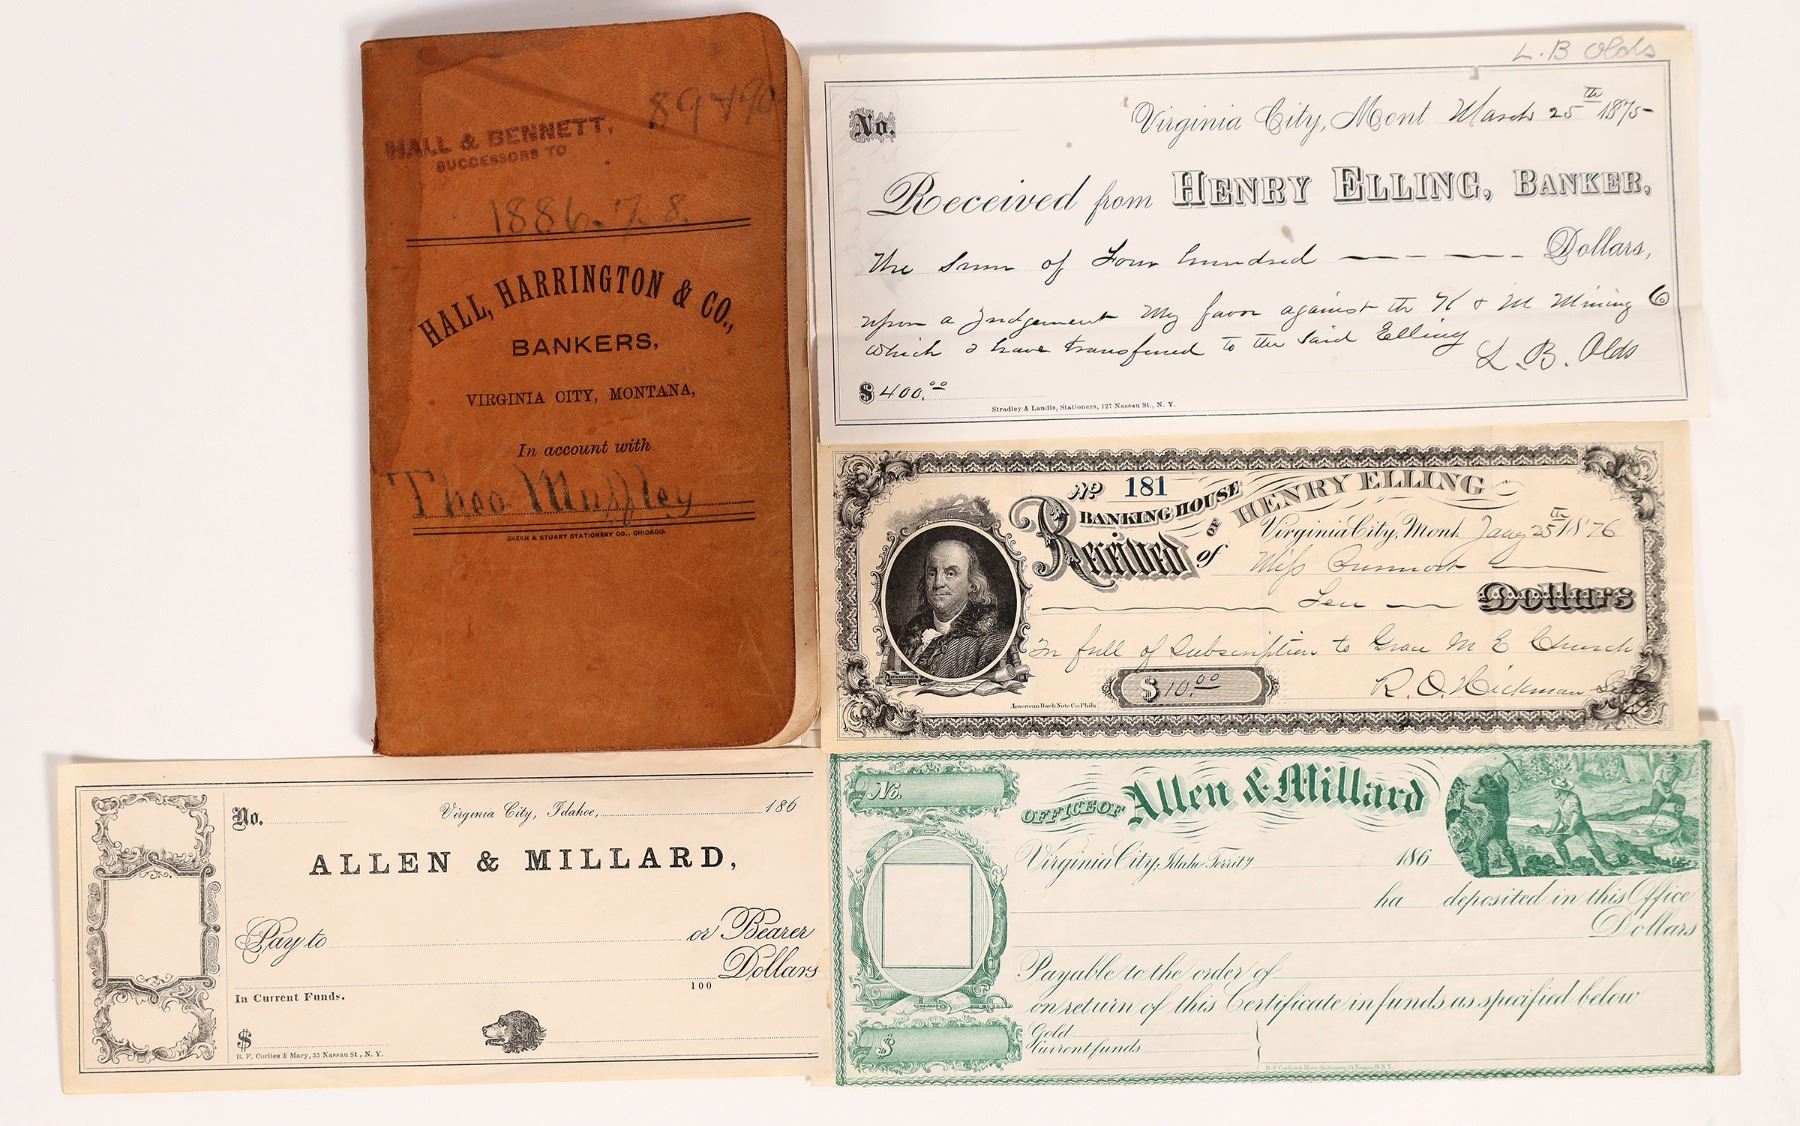 HALL & BENNETT,
SUCCESSORS TO
89+90
1886.7.8.
HALL, HARRINGTON & CO.,
BANKERS,
VIRGINIA CITY, MONTANA,
In account with
Theo Muffley
SKEEN & STUART STATIONERY CO., CHICAGO.
L. B Olds
No.
Virginia City, Mont March 25th 1875
Received from HENRY ELLING, BANKER,
the sum of Four hundred Dollars,
upon a Judgement My favor against the K & M Mining Co
which I have transferred to the said Elling
L. B. Olds
$400.00
Stradley & Landis, Stationers, 127 Nassau St., N. Y.
No 181
BANKING HOUSE OF HENRY ELLING
Virginia City, Mont. Jany 25th 1876
Received of Miss
Ten Dollars
In full of Subscription to Grace M E Church
$10.00
R. O. Hickman
American Bank Note Co. Phila.
No. Virginia City, Idahoe, 186
ALLEN & MILLARD,
Pay to or Bearer
100 Dollars
In Current Funds.
$
B. F. Corlies & Macy, 33 Nassau St., N. Y.
No.
OFFICE OF Allen & Millard
Virginia City, Idaho Territy 186
ha deposited in this Office
Dollars
Payable to the order of
on return of this Certificate in funds as specified below
Gold
Current funds
$
B. F. Corlies & Macy Stationers, 33 Nassau St. N.Y.